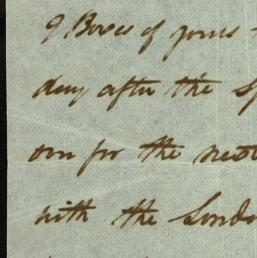 9 Boxes of yours
day after the Sp
own for the next
with the Londo